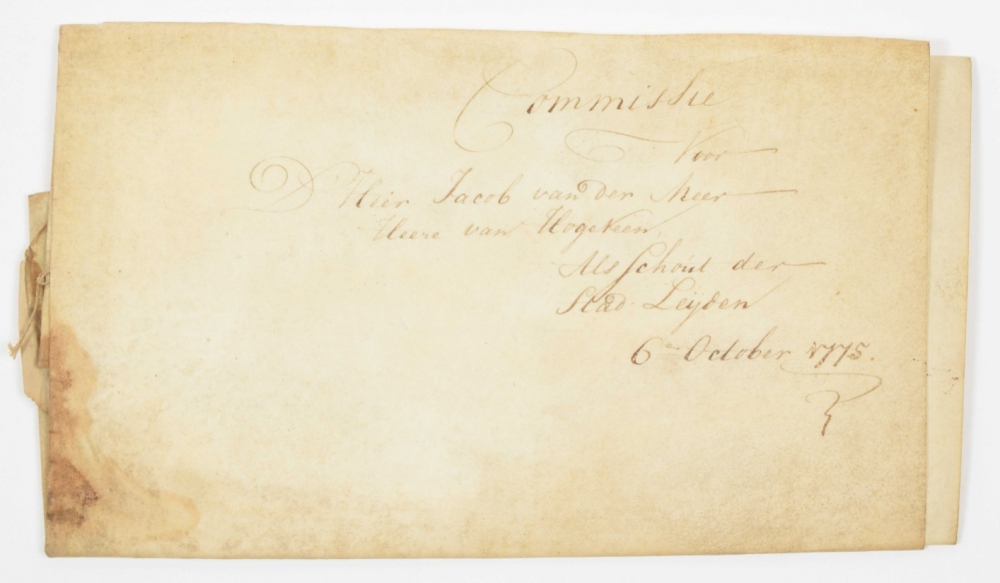 Commissie
Voor
D'Heer Jacob van der Meer
Heere van Hogeveen,
Als Schout der
Stad Leÿden
6en October 1775.